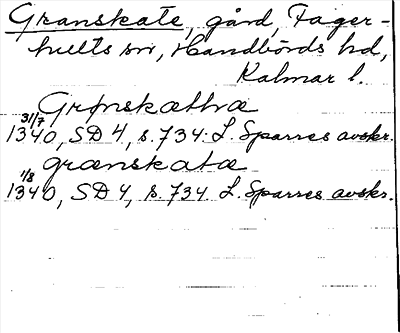 Granskate, gård, Fager-
hults sn, Handbörds hd,
Kalmar l.
Grønskæthæ
31/7 1340, SD 4, s. 734. L. Sparres avskr.
grænskatæ
1/8 1340, SD 4, s. 734. L. Sparres avskr.